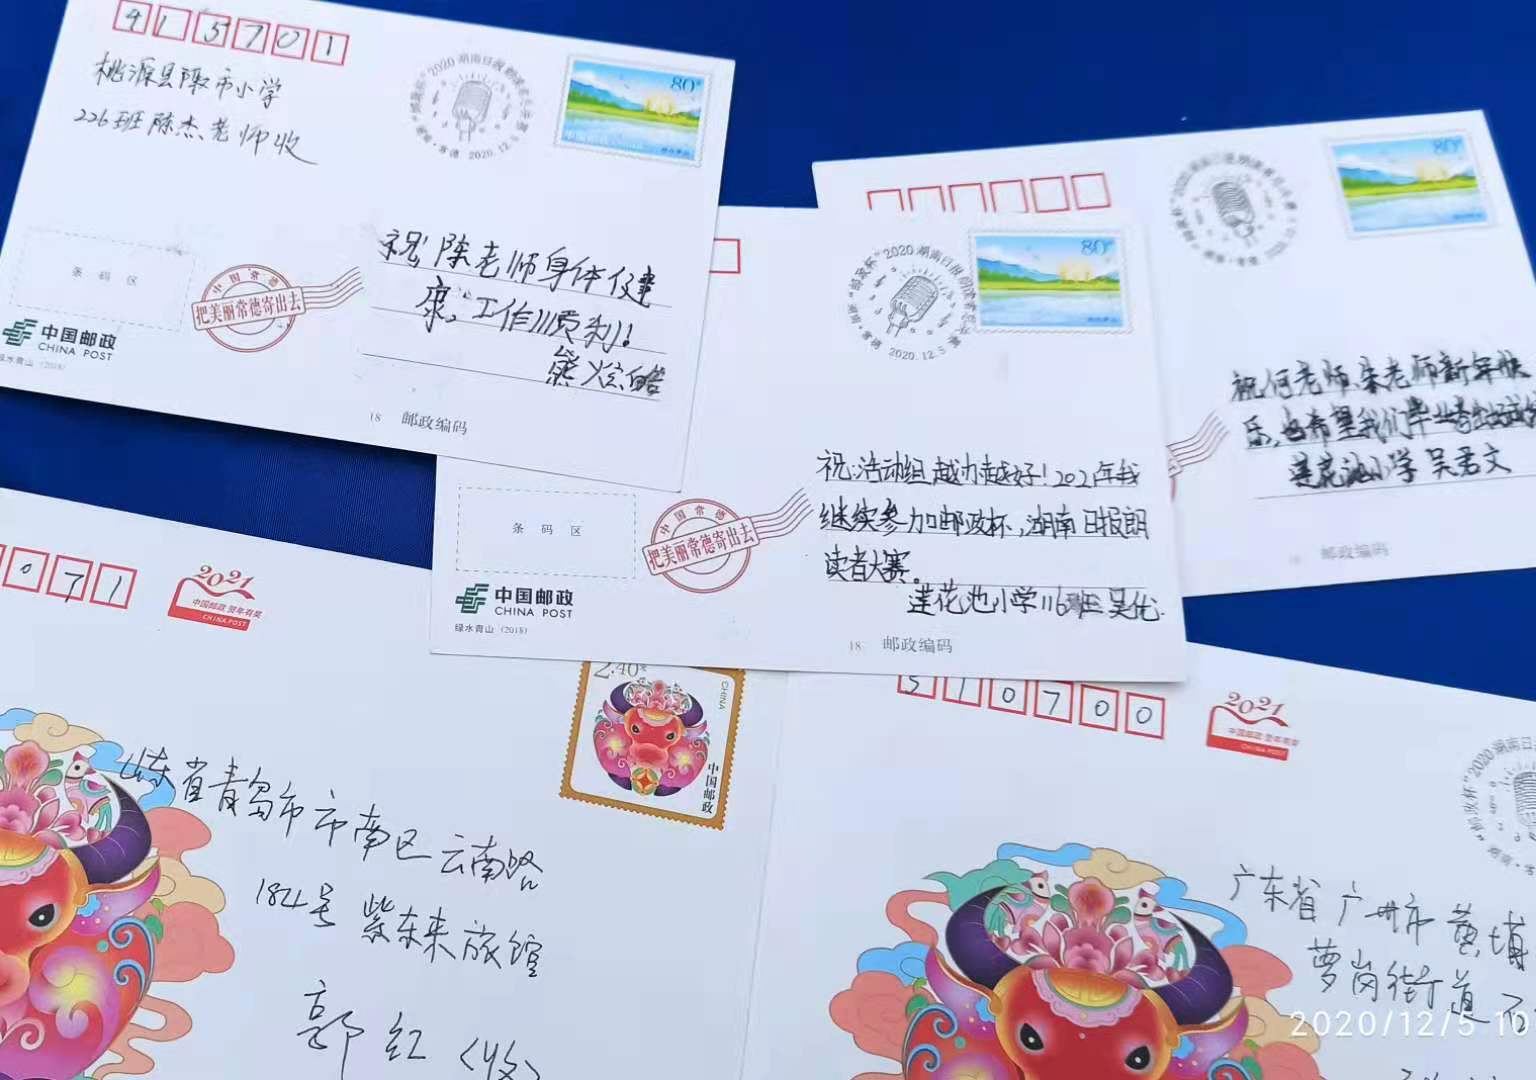 415701
桃源县陬市小学
226班 陈杰老师收
2020湖南日报朗读者大赛
湖南·常德 2020.12.5
80分
条码区
中国常德
把美丽常德寄出去
中国邮政
CHINA POST
绿水青山 (2018)
祝陈老师身体健
康,工作顺利!
熊
18 邮政编码
2020湖南日报朗读者大赛
80分
祝何老师、朱老师新年快
乐,也希望我们毕业考出好成
莲花池小学 吴君文
邮政编码
2020湖南日报朗读者大赛
2020.12.5
80分
祝:活动组越办越好!2021年我
继续参加邮政杯,湖南日报朗
读者大赛。
莲花池小学116班 吴优
条码区
中国常德
把美丽常德寄出去
中国邮政
CHINA POST
绿水青山 (2018)
18 邮政编码
071
2021
中国邮政 贺年有奖
CHINA POST
2.40元
CHINA
中国邮政
山东省青岛市市南区云南路
182号 紫东来旅馆
郭红(收)
510700
2021
中国邮政 贺年有奖
CHINA POST
2020湖南日
广东省广州市黄埔
萝岗街道
2020/12/5 10